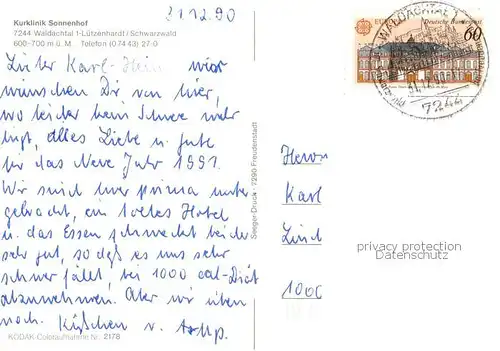 31.12.90
Kurklinik Sonnenhof
7244 Waldachtal 1-Lützenhardt/Schwarzwald
600-700 m ü. M   Telefon (0 74 43) 27-0
Lieber Karl-Hein wir
wünschen Dir von hier,
wo leider kein Schnee mehr
liegt, alles Liebe u. gute
für das Neue Jahr 1991.
Wir sind hier prima unter
gebracht, ein tolles Hotel
u. das Essen schmeckt beider
sehr gut, so daß es uns sehr
schwer fällt, bei 1000 cal-Diät
abzunehmen. Aber wir üben
noch. Küßchen v.
KODAK-Coloraufnahme Nr. 2178
Seeger-Druck · 7290 Freudenstadt
EUROPA Deutsche Bundespost
60
WALDACHTAL 1
7244
Herrn
Karl
Lind
1000
privacy protection